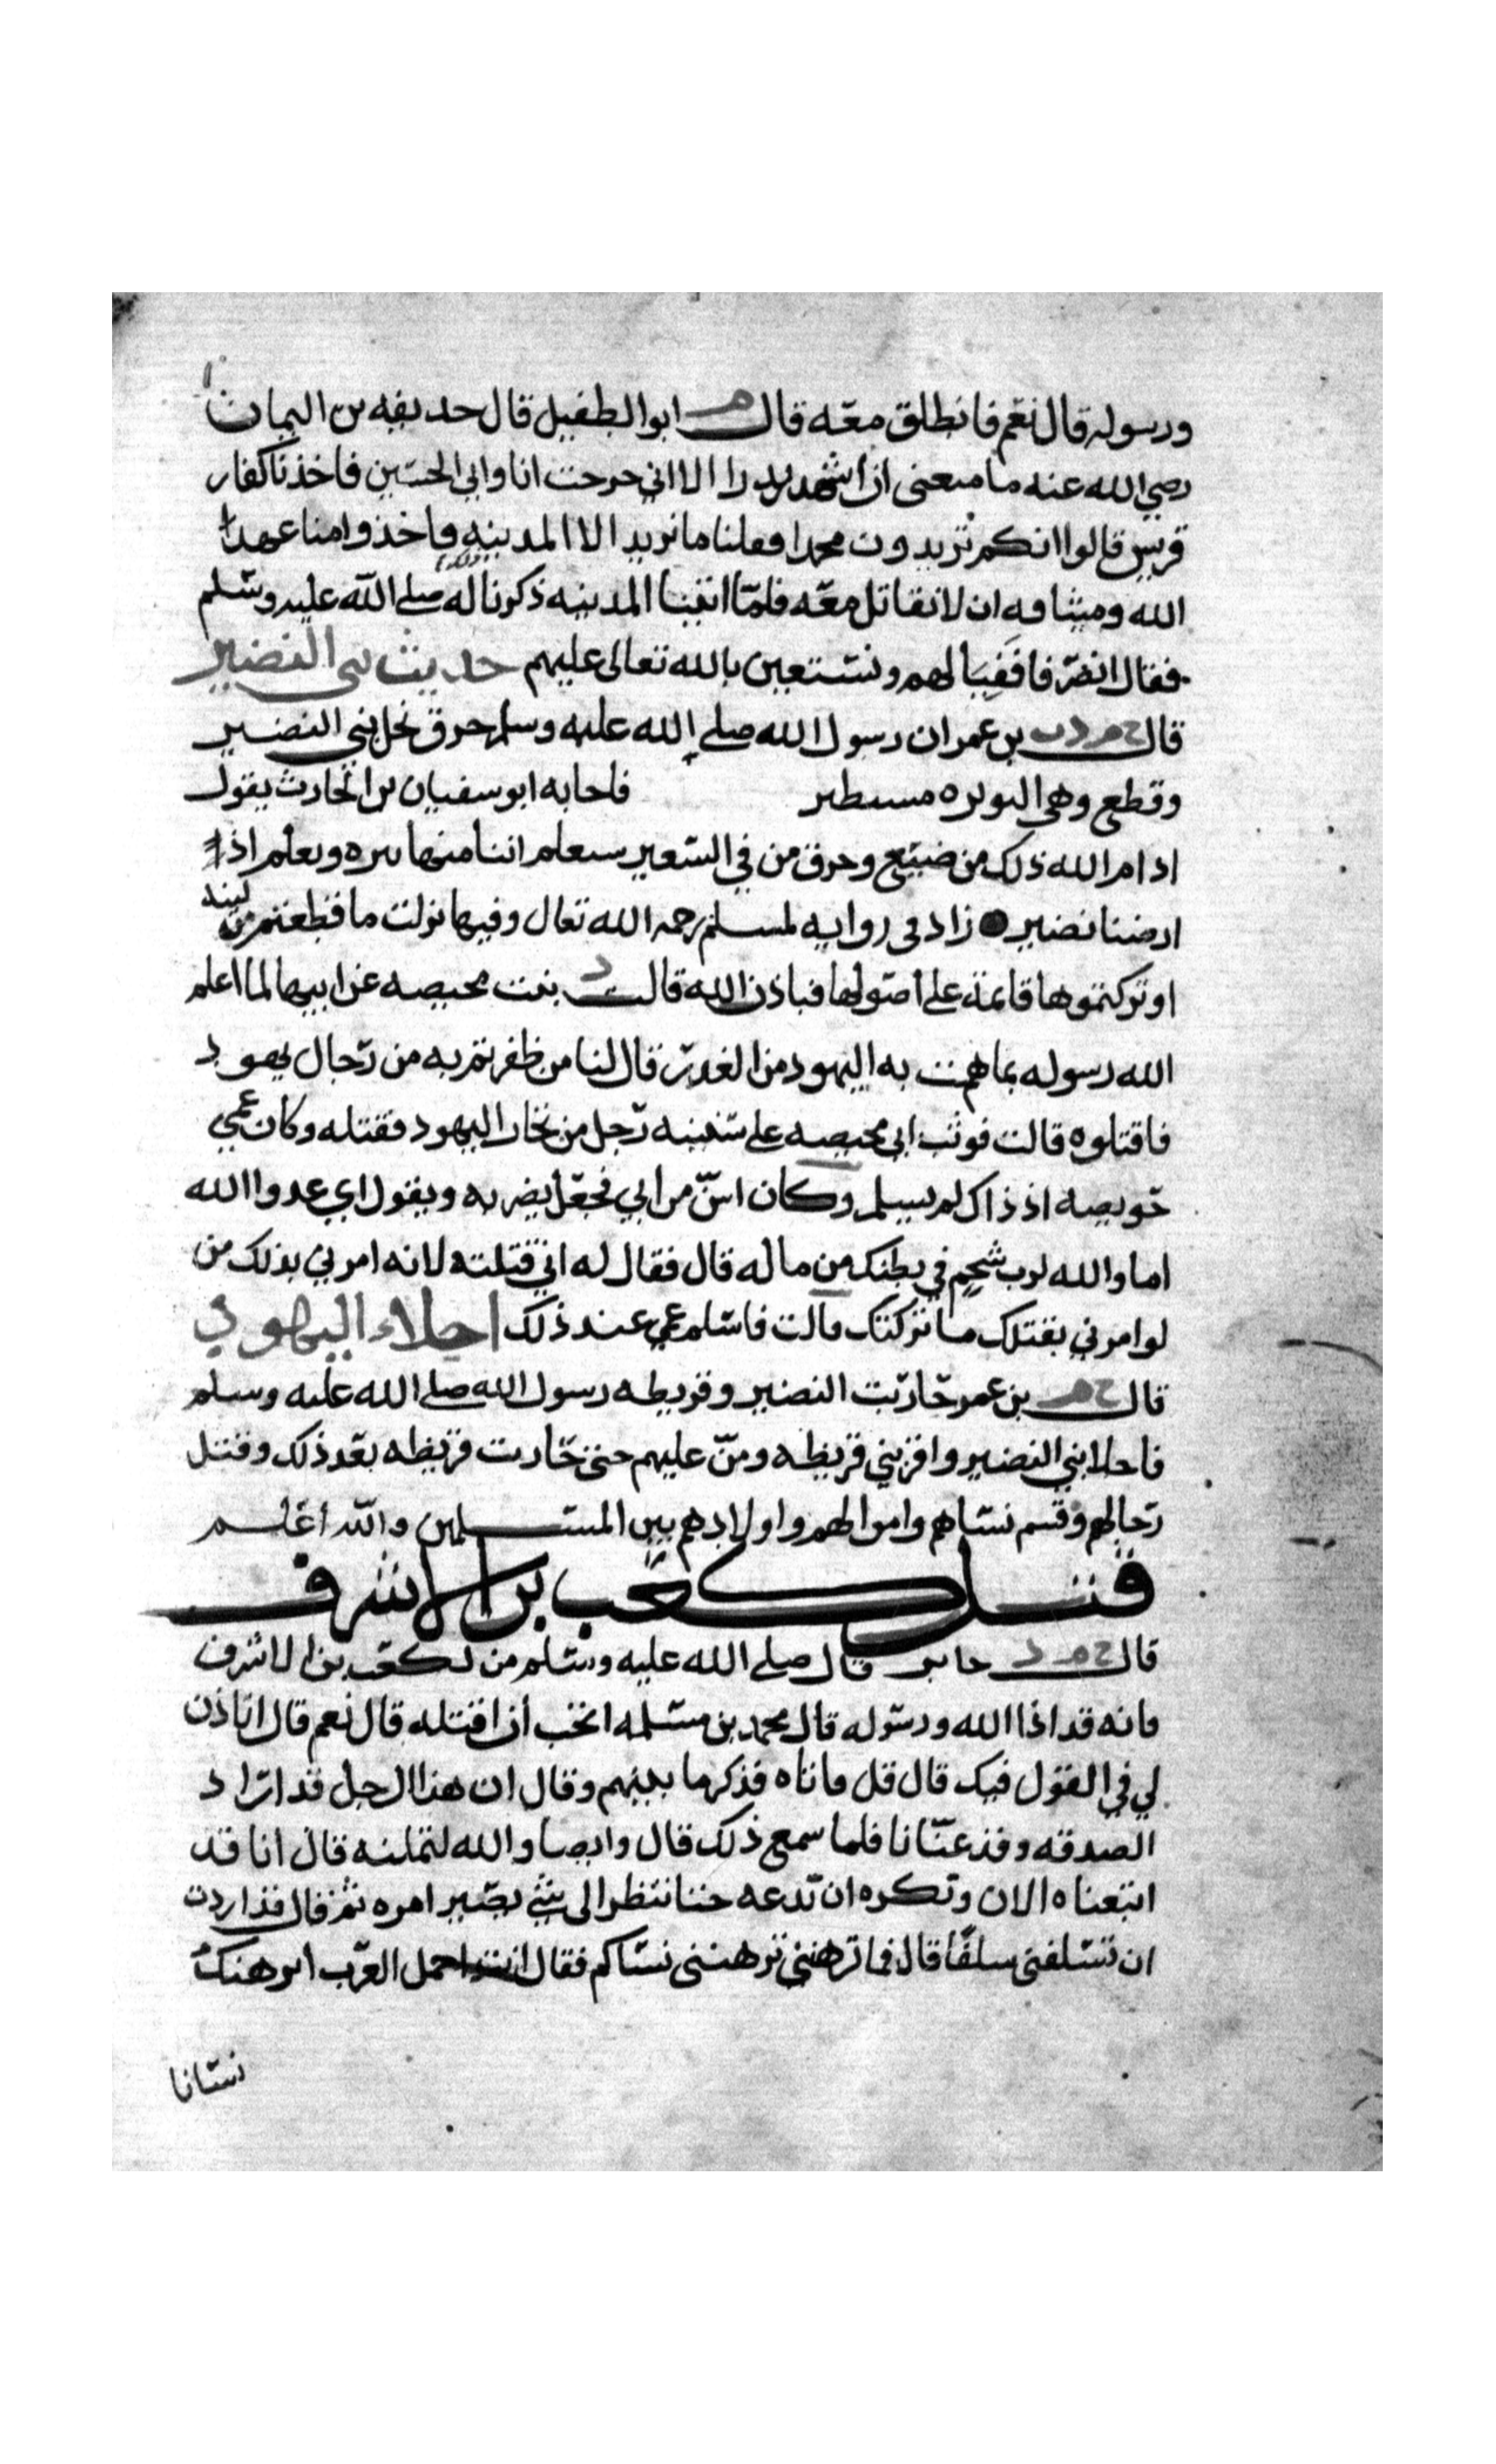 ورسوله قال نعم فانطلق معه قال م ابو الطفيل قال حديفه بن اليمان
رضي الله عنه ما منعنى ان اشهد بدرا الا اني خرجت انا وابي الحسين فاخذنا كفار
قريش قالوا انكم تريدون محمدا فقلنا ما نريد الا المدينه فاخذوا منا عهدا
الله وميثاقه ان لا نقاتل معه فلما اتينا المدينه ذكرنا له صلى الله عليه وسلم
فقال انصرفا ففيا لهم ونستعين بالله تعالى عليهم حديث بني النضير
قال خ م د ت بن عمر ان رسول الله صلى الله عليه وسلم حرق نخل بني النضير
وقطع وهي البويره مستطير فاجابه ابو سفيان بن الحارث يقول
ادام الله ذلك من ضيع وحرق من في السعير ستعلم اننا منها بنزه وتعلم اذا
ارضنا نضير زاد في روايه لمسلم رحمه الله تعال وفيها نزلت ما قطعتم من لينه
او تركتموها قائمة على اصولها فباذن الله قالت د بنت محيصه عن ابيها لما اعلم
الله رسوله بما همت به اليهود من الغدر قال لنا من ظفرتم به من رجال يهود
فاقتلوه قالت فوثب ابي محيصه على شبيبه رجل من تجار اليهود فقتله وكان عمي
حويصه اذ ذاك لم يسلم وكان اسن من ابي فجعل يضربه ويقول اي عدوا الله
اما والله لرب شحم في بطنك من ماله قال فقال له اني قتلته لانه امرني بذلك من
لو امرني بقتلك ما تركتك قالت فاسلم عمي عند ذلك اجلاء اليهود
قال خ م بن عمر حاربت النضير وقريظه رسول الله صلى الله عليه وسلم
فاجلا بني النضير واقر بني قريظه ومن عليهم حتى حاربت قريظه بعد ذلك وقتل
رجالهم وقسم نساهم واموالهم واولادهم بين المسلمين والله أعلم
قتل كعب بن الاشرف
قال خ م د جابر قال صلى الله عليه وسلم من لكعب بن الاشرف
فانه قد اذا الله ورسوله قال محمد بن مسلمه اتحب أن اقتله قال نعم قال اتاذن
لي في القول فيك قال قل فاتاه فذكر ما بينهم وقال ان هذا الرجل قد اراد
الصدقه وقد عنانا فلما سمع ذلك قال وايضا والله لتملنه قال انا قد
اتبعناه الان ونكره ان ندعه حتا ننظر الى شي يصير امره ثم قال قد اردت
ان تسلفني سلفا قال فما ترهنني ترهنني نساكم فقال انت اجمل العرب أنرهنك
نسانا